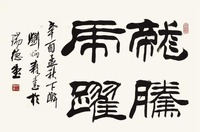 龍騰
虎躍
辛酉孟秋下澣
劉炳森書於
瑞德